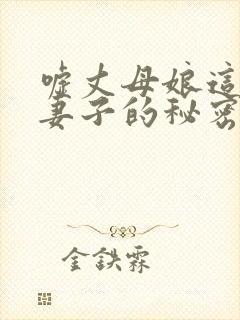 噓丈母娘這
妻子的秘密
金鉄霖